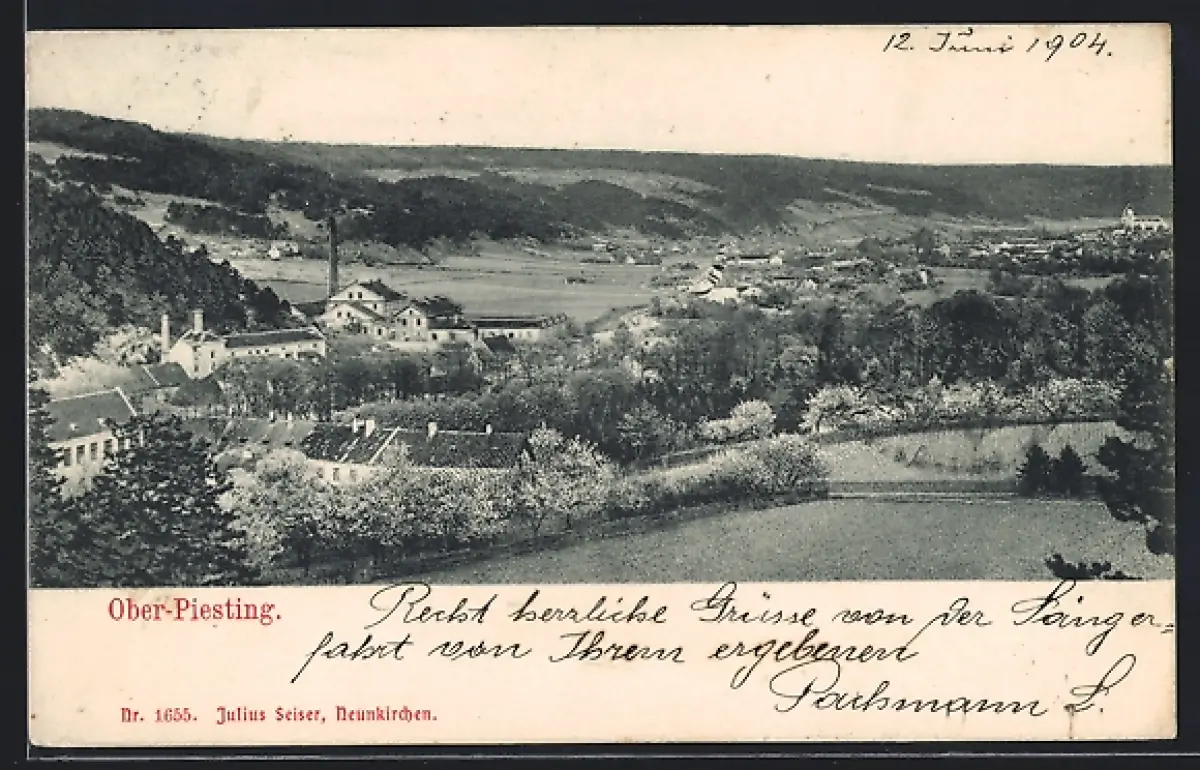 12. Juni 1904.
Ober-Piesting.
Recht herzliche Grüsse von der Sänger-
fahrt von Ihrem ergebenen
Pachmann L.
Nr. 1655. Julius Seiser, Neunkirchen.